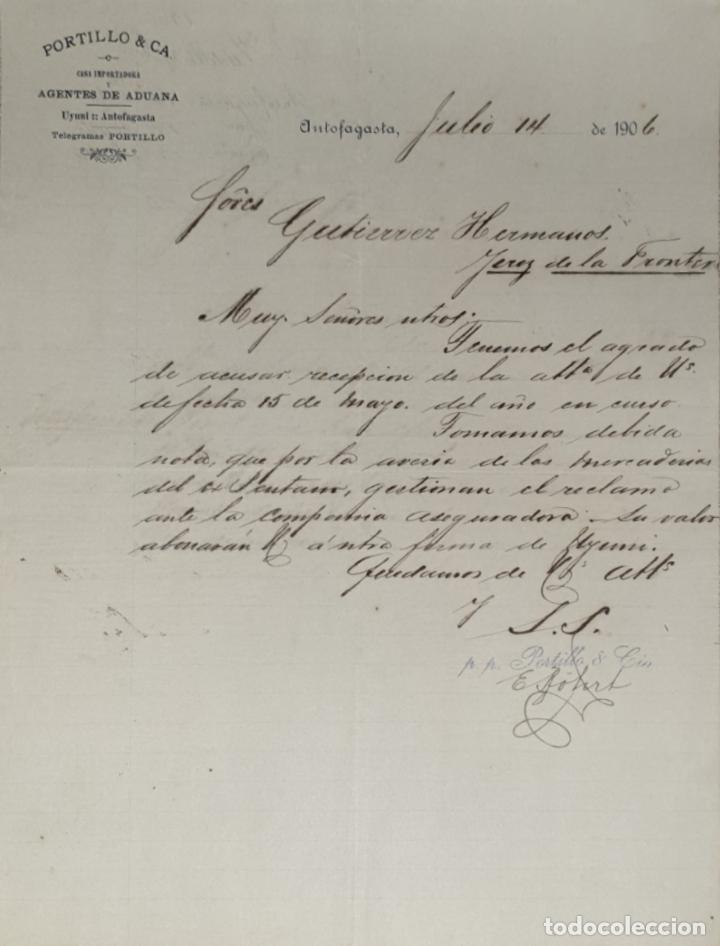 PORTILLO & CA
CASA IMPORTADORA
Y
AGENTES DE ADUANA
Uyuni :: Antofagasta
Telegramas PORTILLO
Antofagasta, Julio 14 de 1906.
Sôres
Gutierrez Hermanos.
Jerez de la Fronter
Muy Señores ntros:
Tenemos el agrado
de acusar recepcion de la atta de Us.
de fecha 15 de Mayo. del año en curso
Tomamos debida
nota, que por la averia de las mercaderias
del ex, gestionan el reclamo
ante la Compania aseguradora. Su valor
abonarán á ntra firma de Uyuni.
Quedamos de Us atts
y S.S.
p. p. Portillo & Cia
todocoleccion